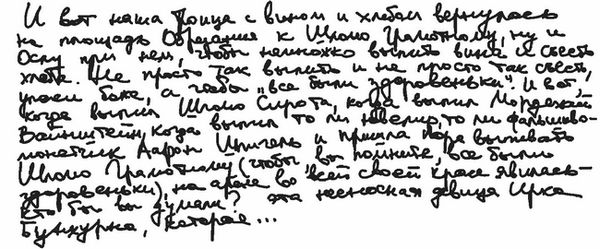 И вот наша троица с вином и хлебом вернулась
на площадь Обрезания к Шломо Грамотному, ну и
Ослу при нем, чтобы немножко выпить вина и съесть
хлеба. Не просто так выпить и не просто так съесть,
упаси боже, а чтобы „все были здоровеньки". И вот,
когда выпил Шломо Сирота, когда выпил Мордехай
Вайнштейн, когда выпил то ли ювелир, то ли фальшиво-
монетчик Аарон Шпигель и пришла пора выпивать
Шломо Грамотному (чтобы вы помните, все были
здоровеньки), на арене во всей своей красе явилась -
кто бы вы думали? эта несносная девица Ирка
Бунжурна, которая...